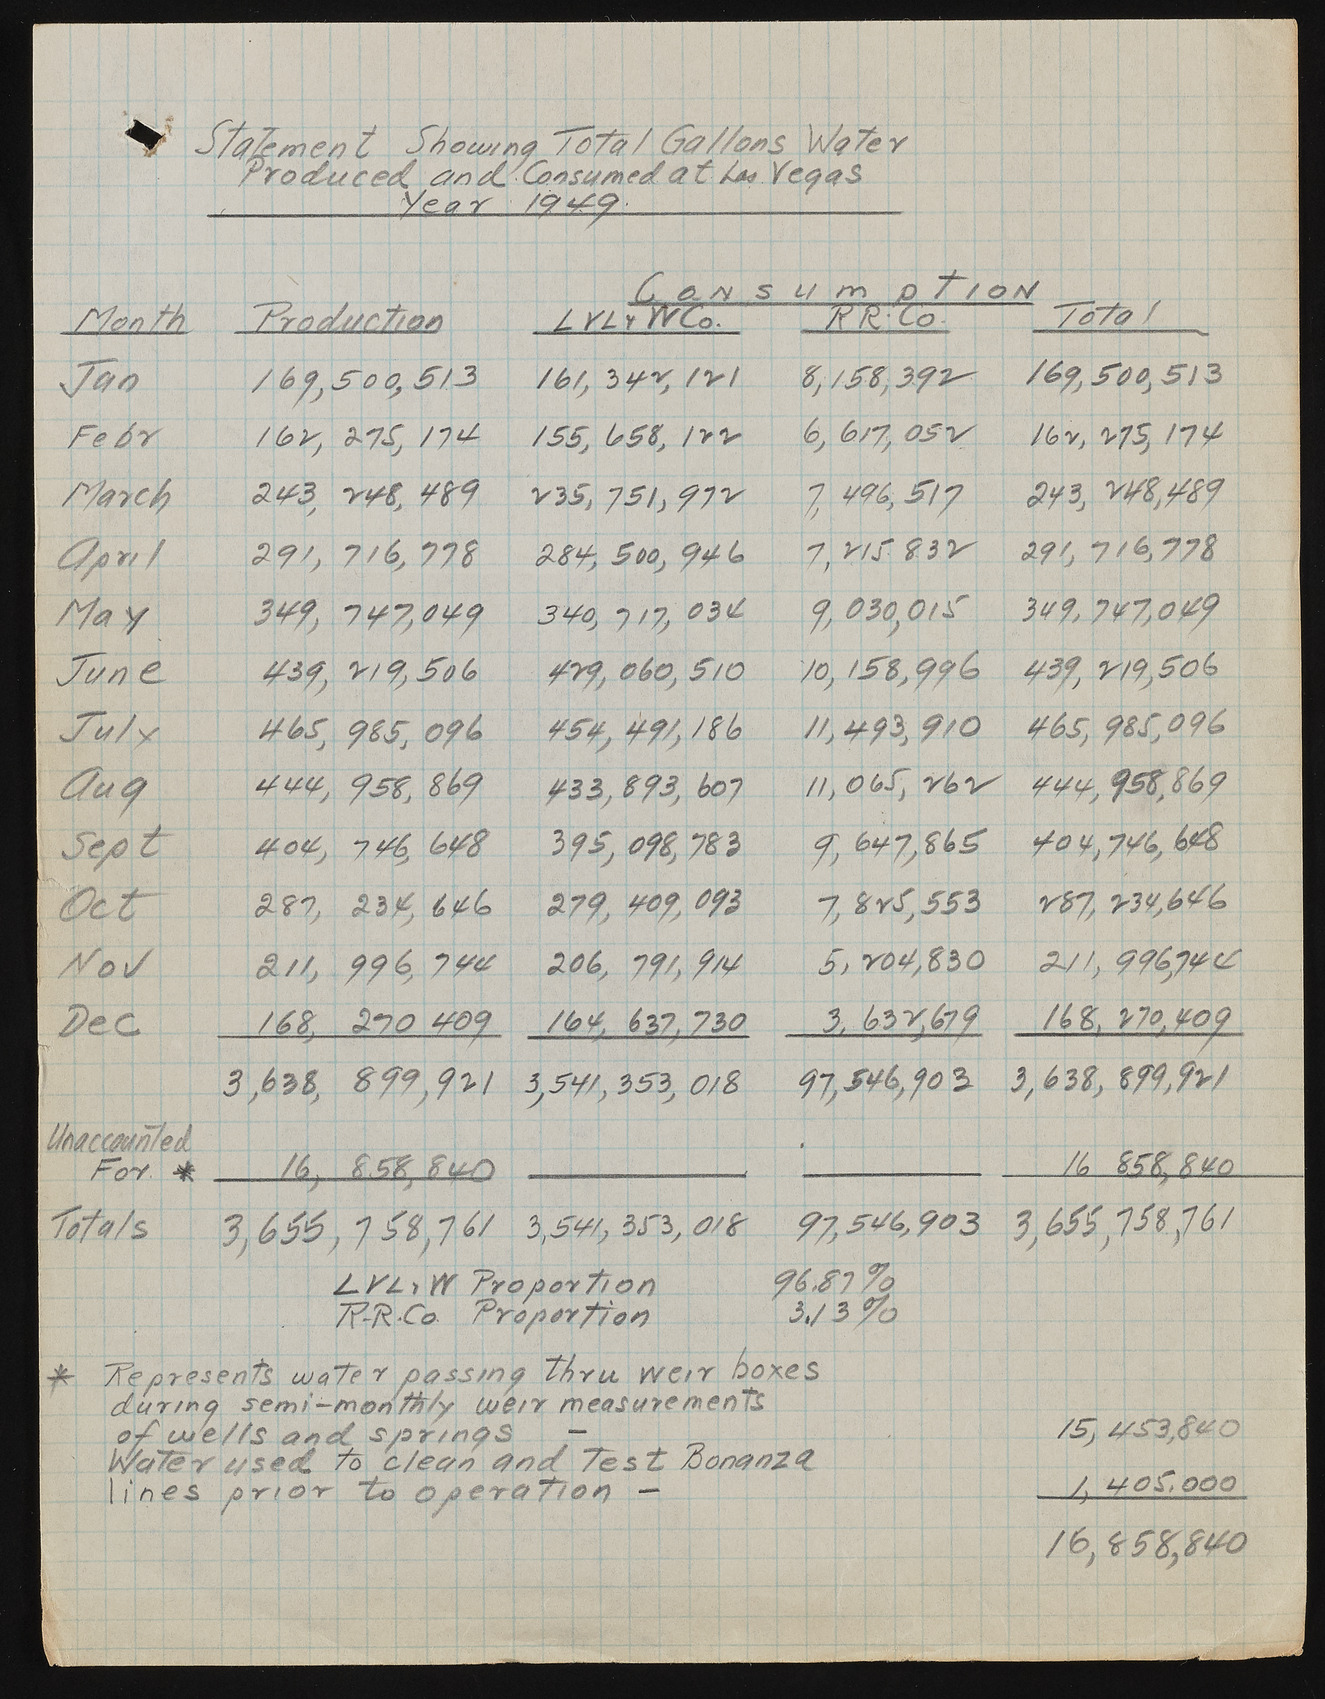 Statement Showing Total Gallons Water
Produced and Consumed at Las Vegas
Year 1949.
Consumption
Month Production LVL&WCo. RR.Co. Total
Jan 169,500,513 161,342,121 8,158,392 169,500,513
Febr 162,275,174 155,658,122 6,617,052 162,275,174
March 243,248,489 235,751,972 7,496,517 243,248,489
April 291,716,778 284,500,946 7,215 832 291,716,778
May 349,747,049 340,717,034 9,030,015 349,747,049
June 439,219,506 429,060,510 10,158,996 439,219,506
July 465,985,096 454,491,186 11,493,910 465,985,096
Aug 444,958,869 433,893,607 11,065,262 444,958,869
Sept 404,746,648 395,098,783 9,647,865 404,746,648
Oct 287,234,646 279,409,093 7,825,553 287,234,646
Nov 211,996,744 206,791,914 5,204,830 211,996,744
Dec 168,270 409 164,637,730 3,632,679 168,270,409
3,638,899,921 3,541,353,018 97,546,903 3,638,899,921
Unaccounted
For. * 16,858,840 16 858,840
Totals 3,655,758,761 3,541,353,018 97,546,903 3,655,758,761
LVL&W Proportion 96.87%
R-R.Co. Proportion 3.13%
* Represents water passing thru weir boxes
during semi-monthly weir measurements
of wells and springs — 15,453,840
Water used to clean and Test Bonanza
lines prior to operation — 1,405.000
16,858,840